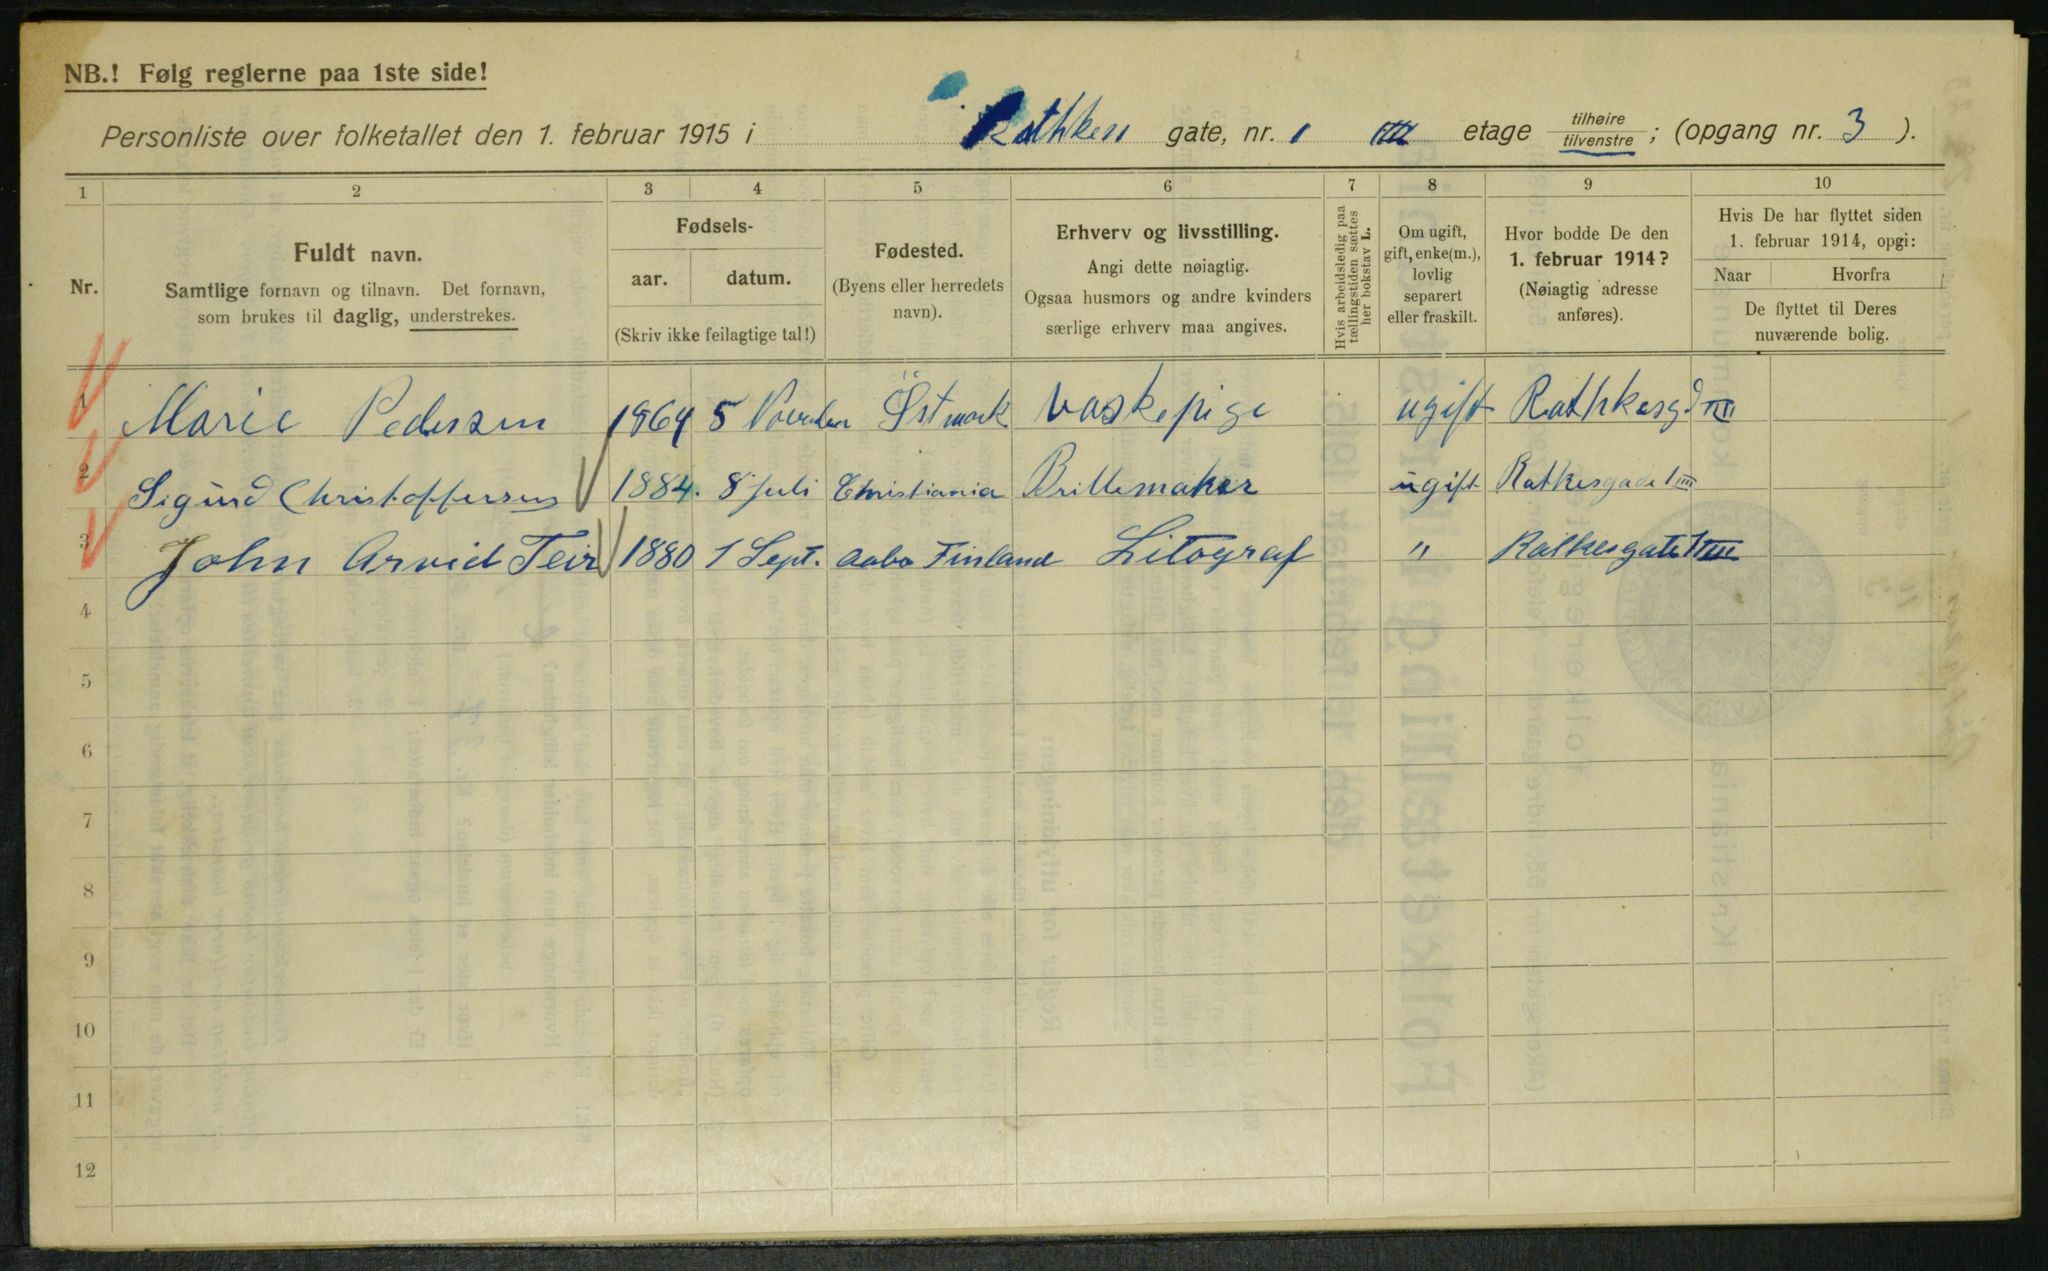 NB.! Følg reglerne paa 1ste side!
Personliste over folketallet den 1. februar 1915 i Rathkes gate, nr. 1 III etage tilhøire tilvenstre ; (opgang nr. 3 ).
1 2 3 4 5 6 7 8 9 10
Nr.
Fuldt navn.
Samtlige fornavn og tilnavn. Det fornavn,
som brukes til daglig, understrekes.
Fødsels-
aar. datum.
(Skriv ikke feilagtige tal!)
Fødested.
(Byens eller herredets
navn).
Erhverv og livsstilling.
Angi dette nøiagtig.
Ogsaa husmors og andre kvinders
særlige erhverv maa angives.
Hvis arbeidsledig paa
tællingstiden sættes
her bokstav L.
Om ugift,
gift, enke(m.),
lovlig
separert
eller fraskilt.
Hvor bodde De den
1. februar 1914?
(Nøiagtig adresse
anføres).
Hvis De har flyttet siden
1. februar 1914, opgi:
Naar Hvorfra
De flyttet til Deres
nuværende bolig.
1 Marie Pedersen 1864 5 November Östmark Vaskepige ugift Rathkesg 1 III
2 Sigurd Christoffersen 1884. 8 juli Christiania Brillemaker ugift Ratkesgade 1 III
3 John Arvid Teir 1880 1 Sept. Aabo Finland Litograf " Ratkesgate 1 III
4
5
6
7
8
9
10
11
12